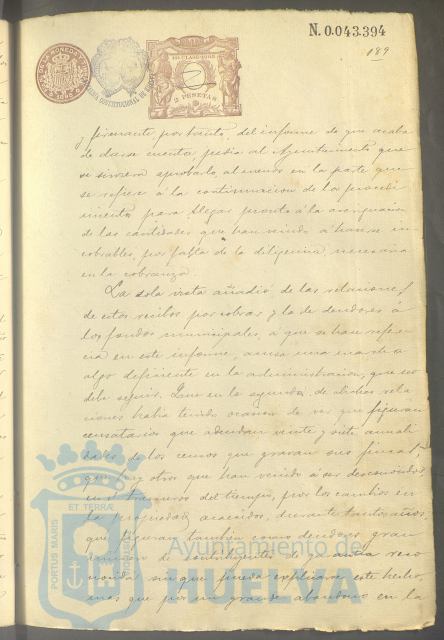 N. 0.043.394
189
11ª CLASE-1903
2 PESETAS
y firmante por tanto del informe de que acaba
de darse cuenta pedia al Ayuntamiento que
se sirviera aprobarlo al menos en la parte que
se refiere á la continuacion de los procedi
mientos para llegar pronto á la
de las cantidades que han venido á hacerse in
cobrables, por falta de la diligencia necesaria
en la cobranza
La sola vista añadió de las relaciones
de estos recibos por cobrar y la de deudores á
los fondos municipales, á que se hace referen
cia en este informe, acusa una marcha
algo deficiente en la administracion, que no
debe seguir. Que en la segunda de dichas rela
ciones habia tenido ocasion de ver que figuran
censatarios que adeudan veinte y siete anuali
dades de los censos que gravan sus fincas,
que hay otros que han venido á ser desconocidos
en el trascurso del tiempo, por los cambios en
la propiedad acaecidos, durante tantos años,
que figuran tambien como deudores gran
de contribuyentes de
sin que pueda explicarse este hecho,
mas que por un grande abandono en la
PORTUS MARIS
ET TERRÆ
Ayuntamiento de
HUELVA